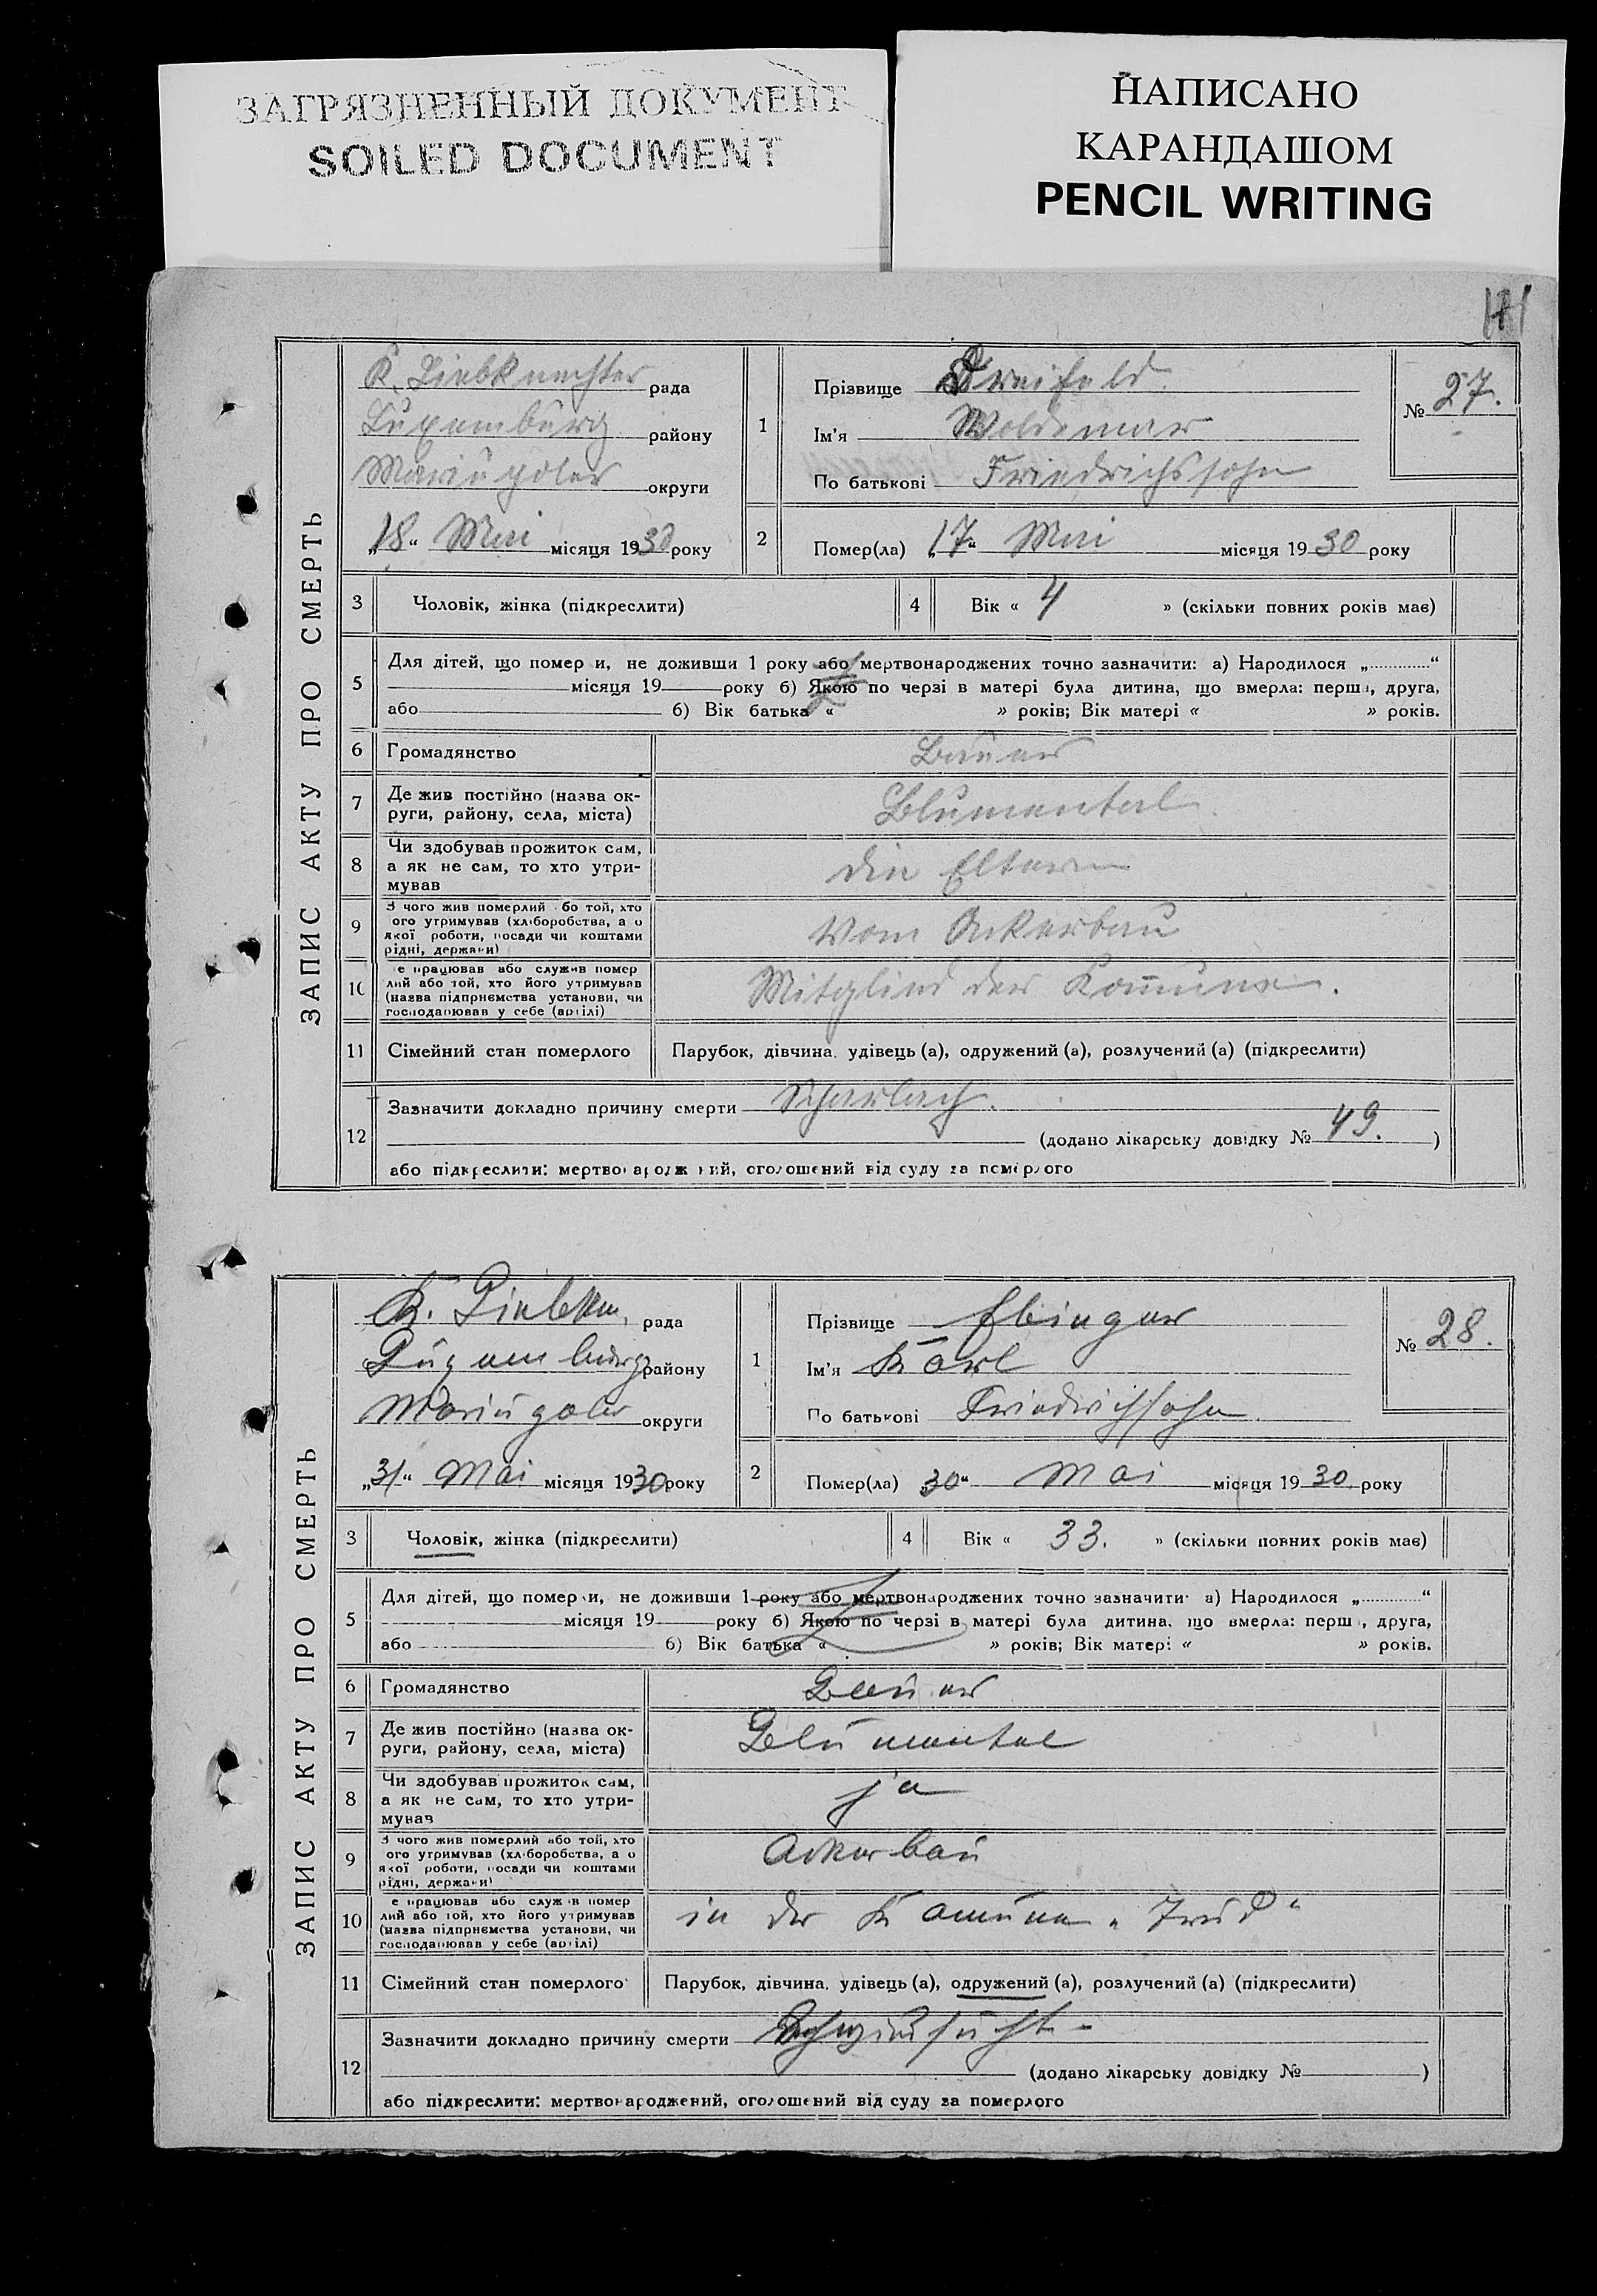 ЗАГРЯЗНЕННЫЙ ДОКУМЕНТ
SOILED DOCUMENT
НАПИСАНО
КАРАНДАШОМ
PENCIL WRITING
ЗАПИС АКТУ ПРО СМЕРТЬ
K. Liebknechter рада
Luxemburg району
Mariupoler округи
„18“ Mai місяця 1930 року
1
Прізвище Dreifeld
Ім'я Woldemar
По батькові Friedrichssohn
№ 27.
2
Помер(ла) „17“ Mai місяця 1930 року
3 Чоловік, жінка (підкреслити)
4 Вік « 4 » (скільки повних років має)
5 Для дітей, що помер и, не доживши 1 року або мертвонароджених точно зазначити: а) Народилося „ “
місяця 19 року б) Якою по черзі в матері була дитина, що вмерла: перша, друга,
або б) Вік батька « » років; Вік матері « » років.
6 Громадянство Bauer
7 Де жив постійно (назва ок-
руги, району, села, міста) Blumental
8 Чи здобував прожиток сам,
а як не сам, то хто утри-
мував die Eltern
9 З чого жив померлий або той, хто
ого утримував (хліборобства, а о
якої роботи, посади чи коштами
рідні, держави) vom Ackerbau
10 е працював або служив помер
лий або той, хто його утримував
(назва підприємства установи, чи
господарював у себе (артілі) Mitglied der Komune.
11 Сімейний стан померлого Парубок, дівчина, удівець (а), одружений (а), розлучений (а) (підкреслити)
12 Зазначити докладно причину смерти Scharlach.
(додано лікарську довідку № 49. )
або підкреслити: мертвонароджений, оголошений від суду за померлого
ЗАПИС АКТУ ПРО СМЕРТЬ
K. Liebkn. рада
Luxemburg району
Mariupoler округи
„31“ Mai місяця 1930 року
1
Прізвище Ebinger
Ім'я Karl
По батькові Friedrichsohn
№ 28.
2
Помер(ла) „30“ Mai місяця 1930 року
3 Чоловік, жінка (підкреслити)
4 Вік « 33. » (скільки повних років має)
5 Для дітей, що помер и, не доживши 1 року або мертвонароджених точно зазначити: а) Народилося „ “
місяця 19 року б) Якою по черзі в матері була дитина, що вмерла: перш , друга,
або б) Вік батька « » років; Вік матері « » років.
6 Громадянство Bauer
7 Де жив постійно (назва ок-
руги, району, села, міста) Blumental
8 Чи здобував прожиток сам,
а як не сам, то хто утри-
мував ja
9 З чого жив померлий або той, хто
ого утримував (хліборобства, а о
якої роботи, посади чи коштами
рідні, держави) Ackerbau
10 е працював або служив помер
лий або той, хто його утримував
(назва підприємства установи, чи
господарював у себе (артілі) in der Komune „Trud“
11 Сімейний стан померлого Парубок, дівчина, удівець (а), одружений (а), розлучений (а) (підкреслити)
12 Зазначити докладно причину смерти Schwindsucht
(додано лікарську довідку № )
або підкреслити: мертвонароджений, оголошений від суду за померлого